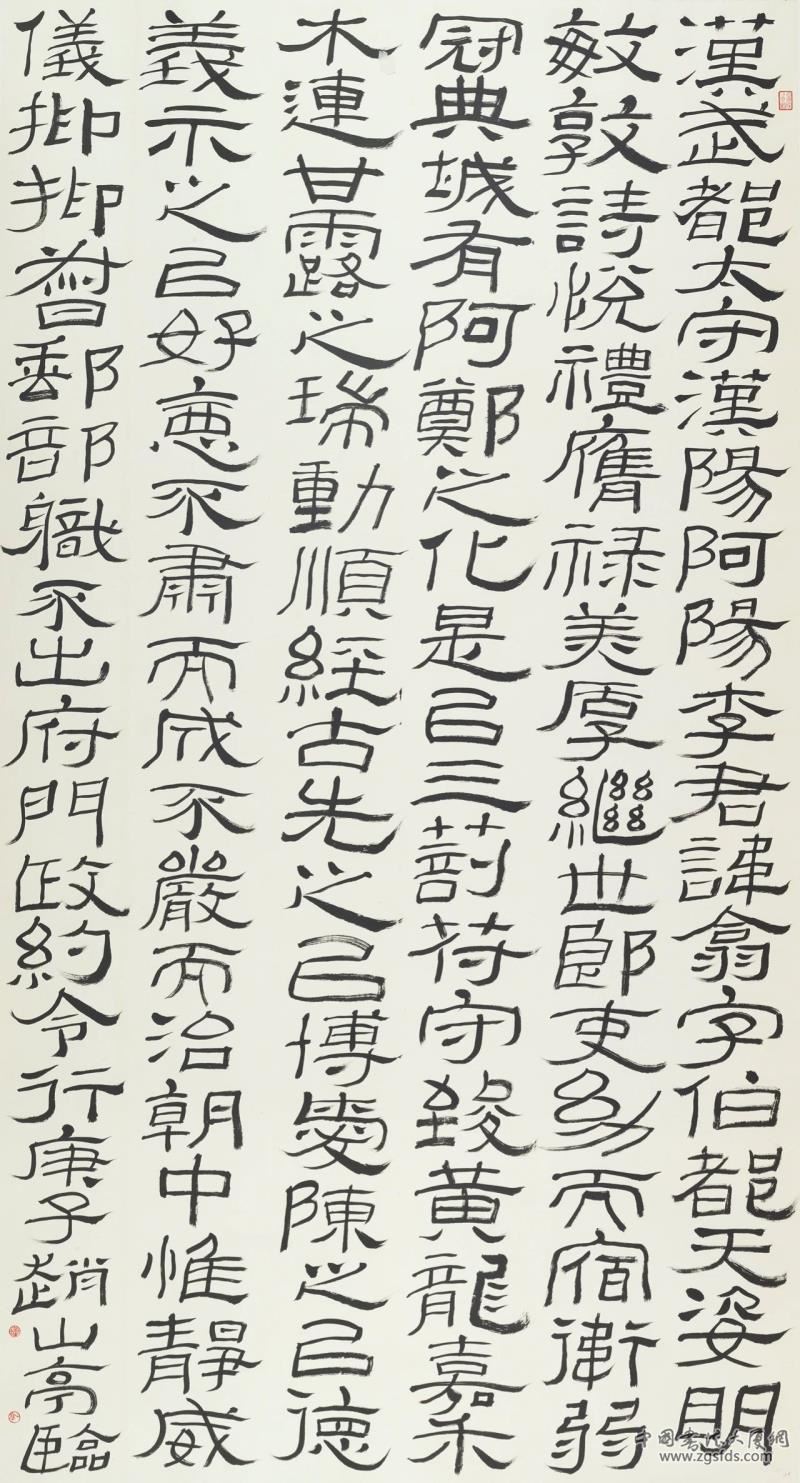 漢武都太守漢陽阿陽李君諱翕字伯都天姿明
敏敦詩悅禮膺祿美厚繼世郎吏幼而宿衛弱
冠典城有阿鄭之化是以三剖符守致黃龍嘉禾
木連甘露之瑞動順經古先之以博愛陳之以德
義示之以好惡不肅而成不嚴而治朝中惟靜威
儀抑抑督郵部職不出府門政約令行庚子趙山亭臨
中國書法大廈網
www.zgsfds.com